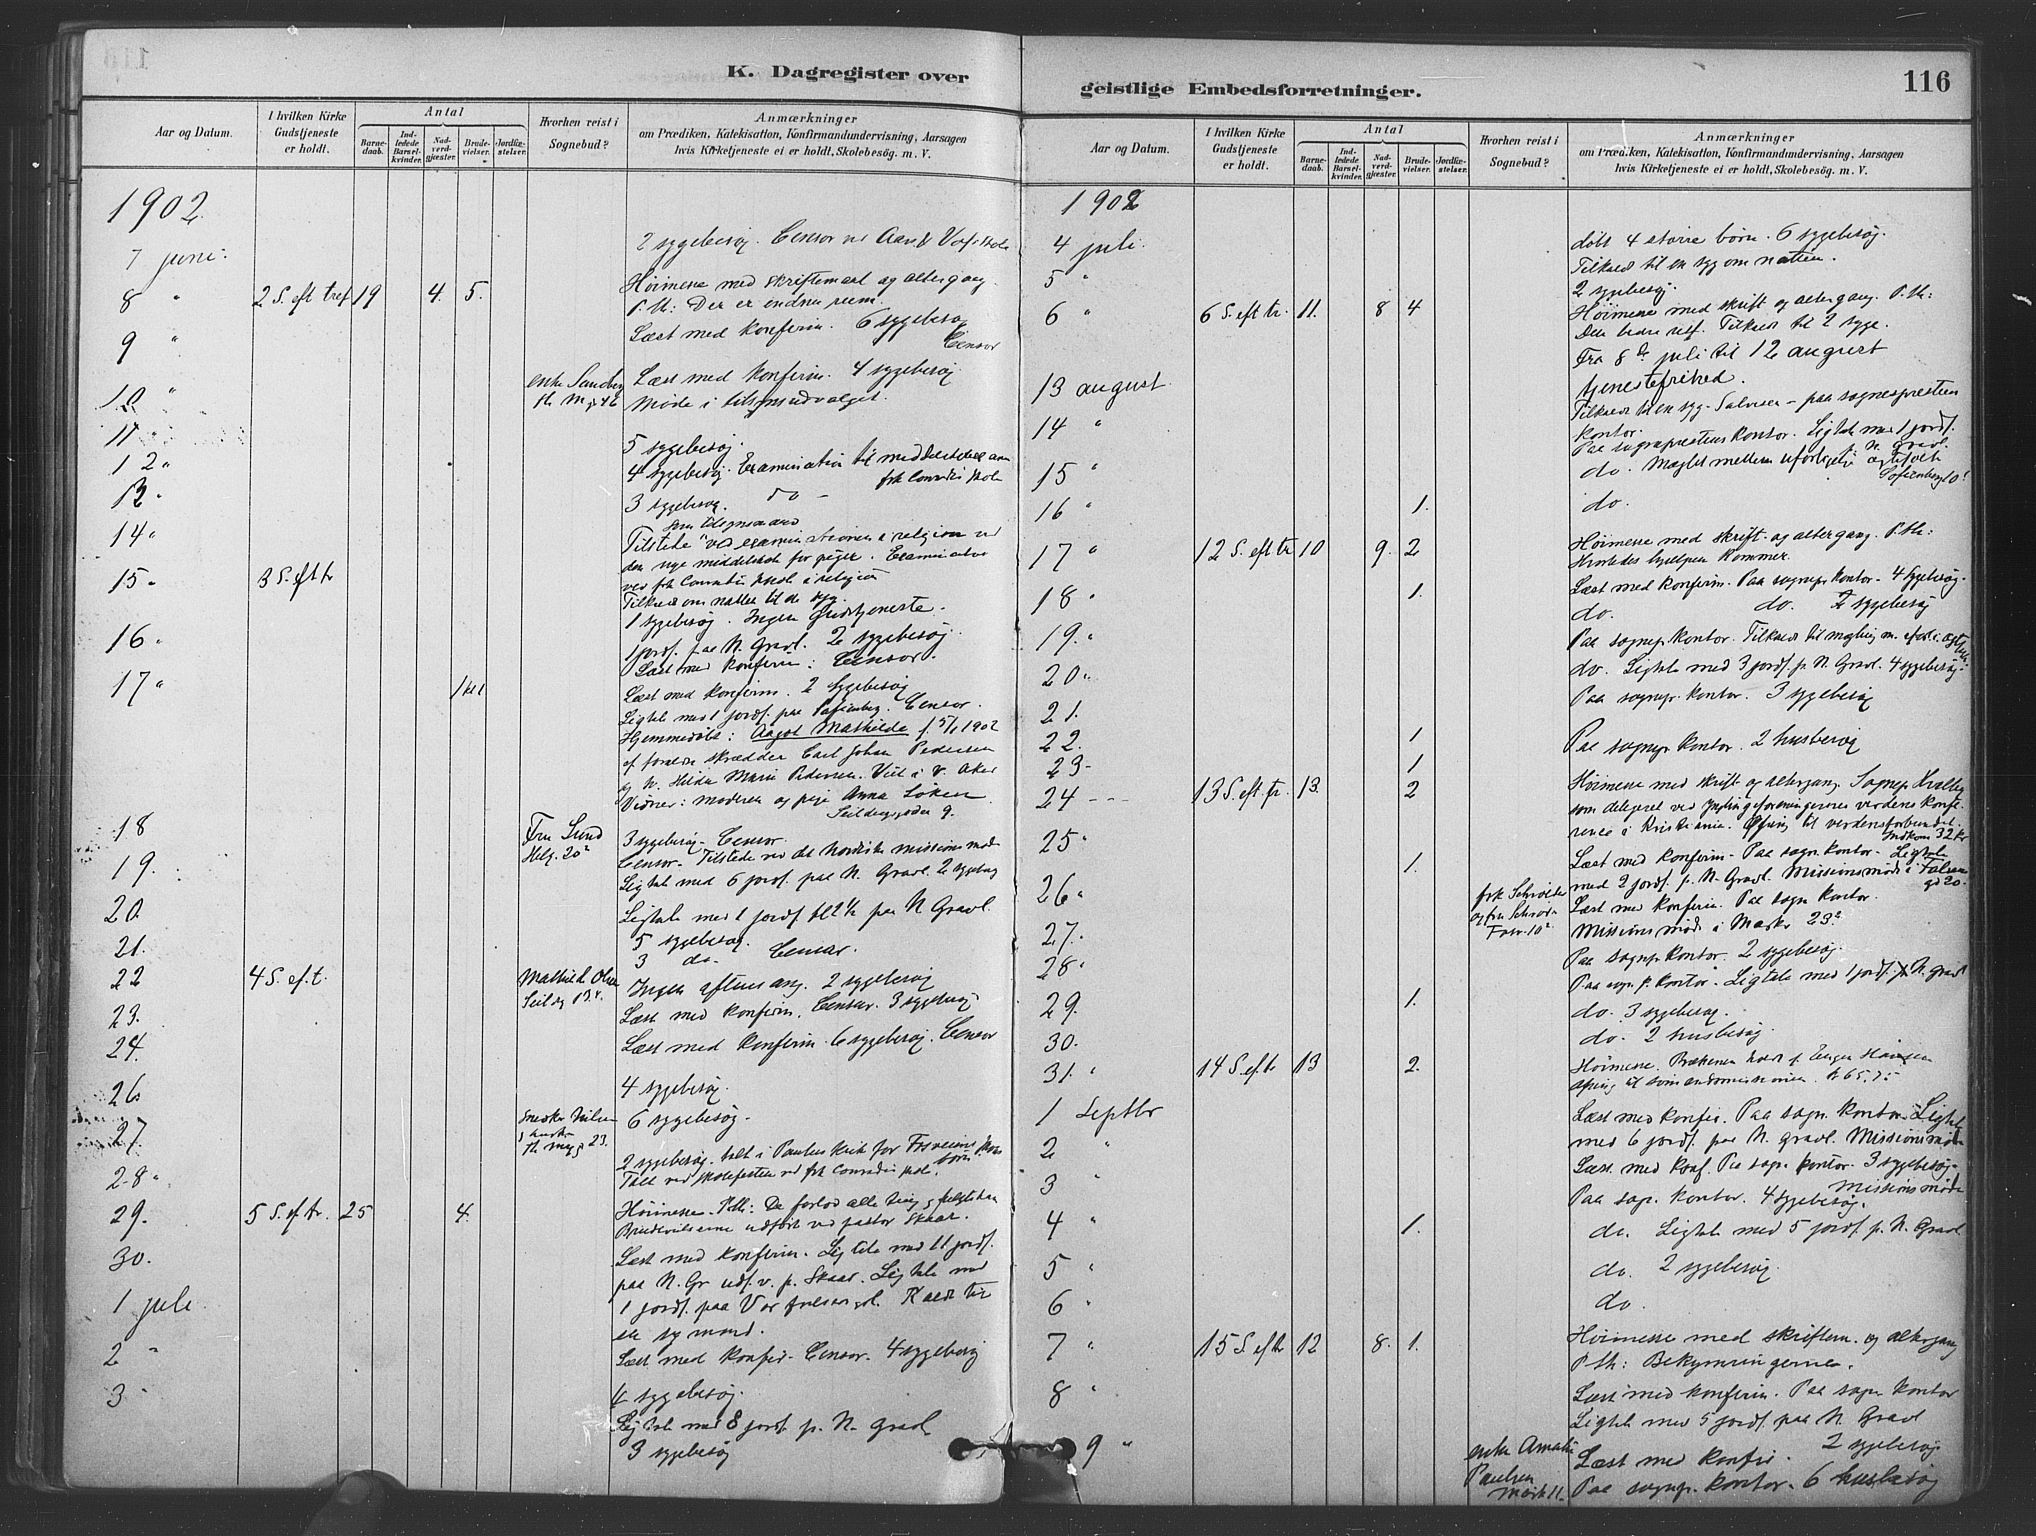 K. Dagregister over
Aar og Datum.
I hvilken Kirke Gudstjeneste er holdt.
Antal
Barnedaab.
Indledede Barselkvinder.
Nadverdgjester.
Brudevielser.
Jordfæstelser.
Hvorhen reist i Sognebud?
Anmærkninger
om Prædiken, Katekisation, Konfirmandundervisning, Aarsagen
hvis Kirketjeneste ei er holdt, Skolebesøg. m. V.
1902
7 juni. 2 sygebesøg. Censor ved
8 " 2 S. eft tref 19 4. 5. Høimesse med skriftemaal og altergang.
P. th: Der er endnu rum.
9 " Læst med konfirm. 6 sygebesøg
Censor
10 " enke Sandberg Læst med konfirm. 4 sygebesøg
th M.g 46 Møde i tilsynsudvalget.
11 " 5 sygebesøg.
12 " 4 sygebesøg. Examination til middelskole
frk Conradis skole
13 " 3 sygebesøg. do -
14 " som tilsynsmand
Tilstede ved examinationen i religion ved
den nye middelskole for piger. Examination
ved frk Conradis skole i religion
Tilkaldt om natten til syg.
15 " 3 S. eft tr 1 sygebesøg. Ingen Gudstjeneste.
16 " 1 jordf. paa N. Gravl. 2 sygebesøg.
Læst med konfirm: Censor.
17 " 1 Læst med konfirm. 2 sygebesøg
Ligtale med 1 jordf. paa Sofienberg. Censor.
Hjemmedøbt: Aagot Mathilde f. 5/1 1902
af forældre skrædder Carl Johan Pedersen
og h. Hilda Marie Pedersen. Viet i V. Aker
Vidner: moderen og pige Anna Løken
Seildugsgaden 9.
18 Fru Lund 3 sygebesøg - Censor.
19. Helg. 20² Censor - Tilstede ved det Nordiske missionsmøde
Ligtale med 6 jordf. paa N. Gravl. 2 sygebesøg
20. Ligtale med 1 jordf paa N Gravl.
5 sygebesøg.
21. 3 do - Censor.
22 4 S. ef. t. Mathilde Olsen Ingen aftensang. 2 sygebesøg
23. Læst med konfirm. Censur. 3 sygebesøg
24. Læst med konfirm. 6 sygebesøg. Censor
26 4 sygebesøg.
27 snedker Nilsen 6 sygebesøg.
th myg 23.
28 " 2 sygebesøg. talt i Paulus kirke for
Talt ved skolefesten ved frk Conradis skole.
29. 5 S. ef tr. 25 4. Høimesse - P.th: De forlod alle ting og fulgte ham
Brudevielserne udført ved pastor Skaar.
30. Læst med konfirm. Ligtale med 11 jordf.
paa N. Gr udf. v. p. Skaar. Ligtale med
1 juli. 1 jordf. paa Vor frelsers gl. Kaldt til
en syg mand.
2 " Læst med konfir. Censor. 4 sygebesøg
3 " 4 sygebesøg.
Ligtale med 8 jordf p. N. Gravl
3 sygebesøg
geistlige Embedsforretninger.
116
Aar og Datum.
I hvilken Kirke Gudstjeneste er holdt.
Antal
Barnedaab.
Indledede Barselkvinder.
Nadverdgjester.
Brudevielser.
Jordfæstelser.
Hvorhen reist i Sognebud?
Anmærkninger
om Prædiken, Katekisation, Konfirmandundervisning, Aarsagen
hvis Kirketjeneste ei er holdt, Skolebesøg. m. V.
1902
4 juli. døbt 4 større børn. 6 sygebesøg.
Tilkaldt til en syg om natten.
5 " 2 sygebesøg
6 " 6 S. eft tr. 11. 8 4 Høimesse med skrift og altergang. P. th:
Den bedre retf. Tilkaldt til 2 syge.
Fra 8de juli til 12 august
tjenestefrihed.
13 august. Tilkaldt til en syg - paa sognepræstens
kontor.
14 " Paa sognepræstens kontor. Ligtale med 1 jordf.
N. Gravl.
15 " do. Mæglet mellem uforligelige ægtefolk
Sofienberg
16 " 1. do.
17 " 12 S. eft tr 10 9. 2 Høimesse med skrift- og altergang. P.th:
Hvorledes hjælpen kommer.
18 " 1. Læst med konfirm. Paa sognepr. kontor - 4 sygebesøg.
do. do. 2 sygebesøg
19. " Paa sognepr. kontor. Tilkaldt til mægling
20 " do. Ligtale med 3 jordf. p. N. Gravl. 4 sygebesøg.
21. Paa sognepr. kontor. 3 sygebesøg
22. 1 Paa sognepr. kontor. 2 husbesøg
23- 1
24 --- 13 S. eft. tr. 13. 2 Høimesse med skrift- og altergang. Sognepr. Hvalby
som delegeret ved Ynglingeforeningernes verdenskonfe-
rence i Kristiania. Ofring til verdensforbundet.
Indkom 32 kr
25 " 1. Læst med konfirm - Paa sogn. kontor - Ligtale
med 2 jordf. p. N. Gravl. Missionsmøde i Falsen
gd 20.
26 " frk Schrøder Læst med konfirm. Paa sogn kontor.
og fru Schrøder Missionsmøde i Markv 23²
27. Paa sognepr. kontor. 2 sygebesøg.
28 " Paa sogn. p. kontor. Ligtale med 1 jordf. p. N. gravl
29. 1. do. 3 sygebesøg.
30. do. 2 husbesøg.
31. " 14 S. ef tr 13 2. Høimesse.
1 Septbr Læst med konfir. Paa sogn. kontor. Ligtale
med 6 jordf. paa N. gravl. Missionsmøde
2 " Læst med konf. Paa sogn. kontor. 3 sygebesøg.
Missionsmøde
3 " Paa sogn. kontor. 4 sygebesøg.
4 " 1. do. Ligtale med 5 jordf. p. N. Gravl
5 " do. 2 sygebesøg.
6 " do.
7 " 15 S. ef tr 12 8. 1. Høimesse med skriftem. og altergang
P. th: Bekymringerne.
8 " Læst med konfirm. Paa sogn kontor
Ligtale med 5 jordf. paa N. Gravl
2 sygebesøg.
9 " enke Amalie Læst med konfir.
Paulsen Paa sognepr. kontor. 6 husbesøg
Mark 11.